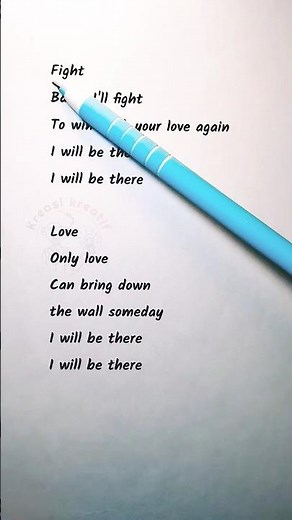 Fight
I'll fight
To win your love again
I will be
I will be there
Kreasi kreatif
Love
Only love
Can bring down
the wall someday
I will be there
I will be there